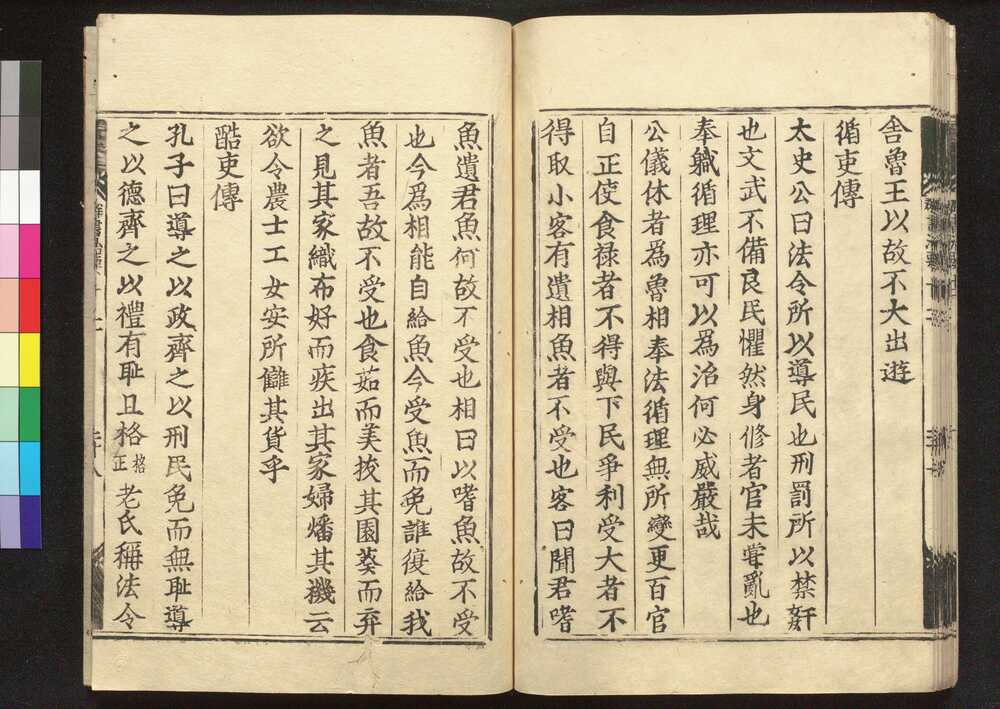 舎魯王以故不大出遊
循吏傳
太史公曰法令所以導民也刑罰所以禁姧
也文武不備良民懼然身修者官未甞亂也
奉職循理亦可以爲治何必威嚴哉
公儀休者爲魯相奉法循理無所變更百官
自正使食禄者不得與下民爭利受大者不
得取小客有遺相魚者不受也客曰聞君嗜
魚遺君魚何故不受也相曰以嗜魚故不受
也今爲相能自給魚今受魚而免誰復給我
魚者吾故不受也食茹而美拔其園葵而弃
之見其家織布好而疾出其家婦燔其機云
欲令農士工女安所讎其貨乎
酷吏傳
孔子曰導之以政齊之以刑民免而無恥導
之以德齊之以禮有恥且格格正老氏稱法令